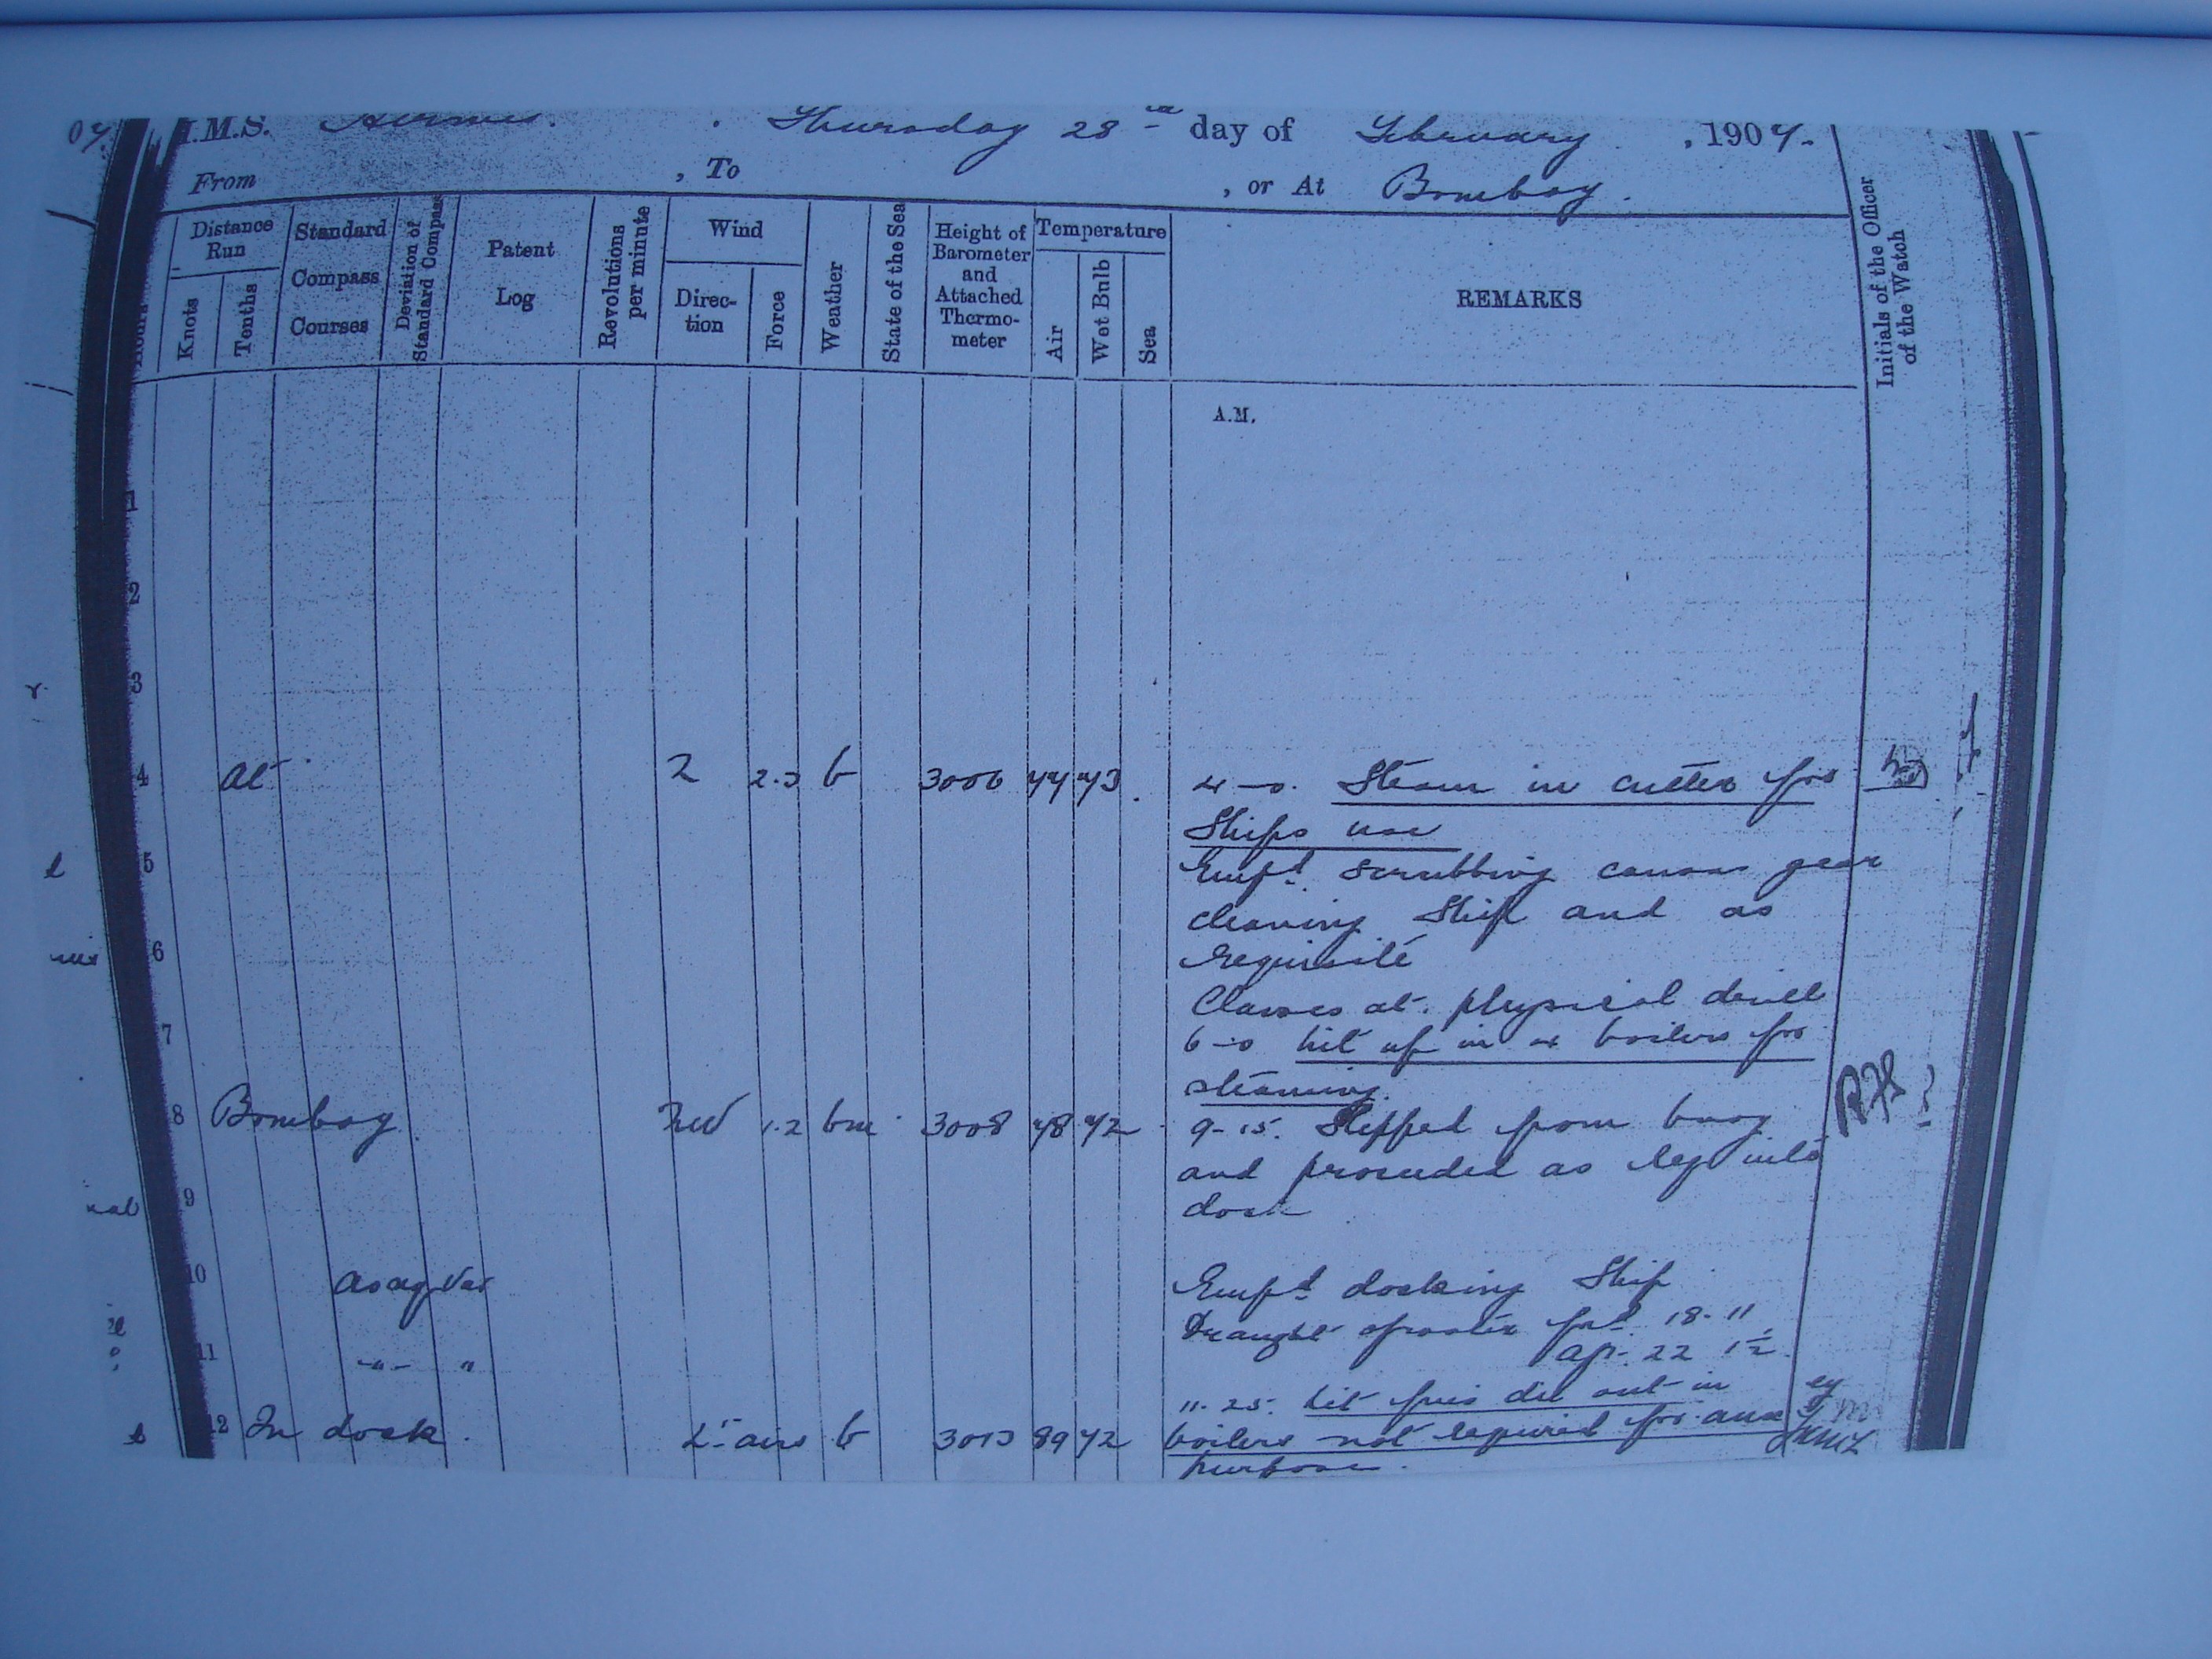 07.
H.M.S. Hermes. Thursday 28th day of February, 1907.
From , To , or At Bombay.
Hours
Distance Run
Knots
Tenths
Standard Compass Courses
Deviation of Standard Compass
Patent Log
Revolutions per minute
Wind
Direc-tion
Force
Weather
State of the Sea
Height of Barometer and Attached Thermo-meter
Temperature
Air
Wet Bulb
Sea
REMARKS
Initials of the Officer of the Watch
A.M.
1
2
3
4 At 2.3 b 3006 77 73 4-0. Steam in cutter for
Ships use
5 Empd. scrubbing canvas gear
cleaning Ship and as
6 requisite
Classes at physical drill
7 6-0 lit up in 4 boilers for
steaming.
8 Bombay. NW 1.2 bm 3008 78 72 9-15. Slipped from buoy
and proceeded as req into
9 dock
10 as req Var Empd docking Ship
Draught of water ford. 18-11
11 -"- " aft. 22 1½
11-25. Let fires die out in
12 In dock. Lt airs b 3013 89 72 boilers not required for aux
purposes.